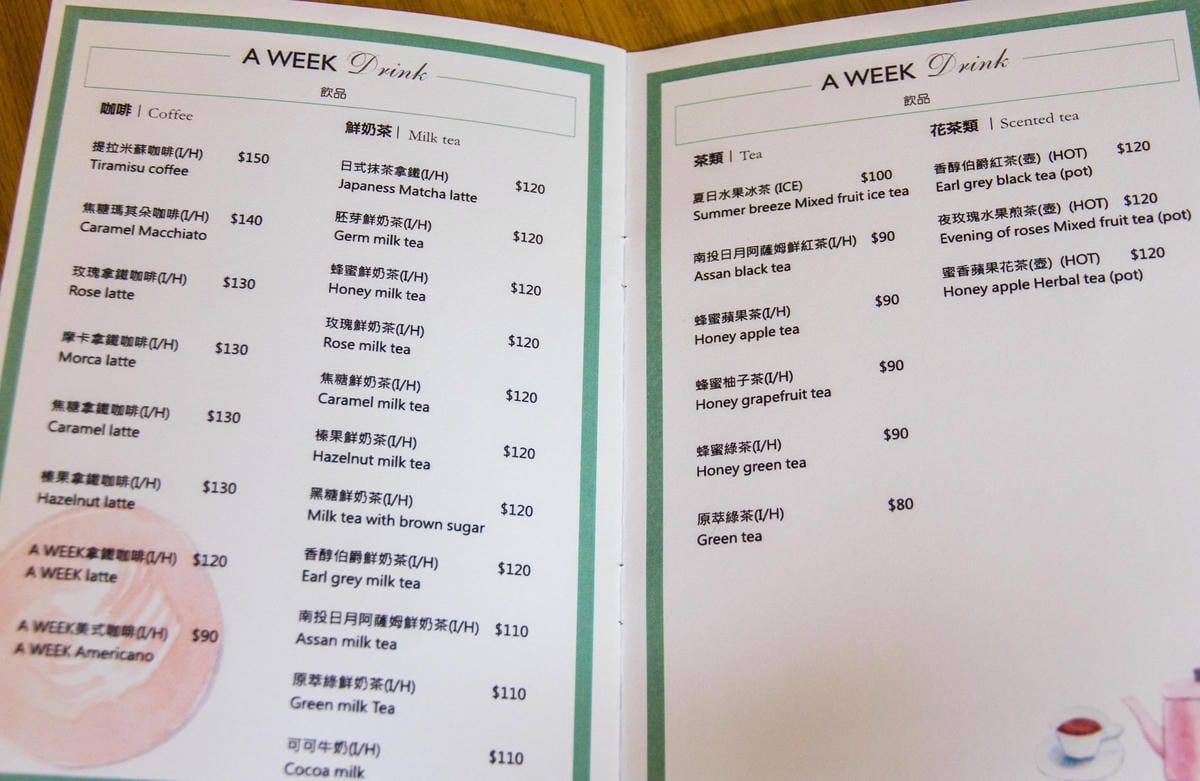 A WEEK Drink
飲品
咖啡 | Coffee
提拉米蘇咖啡(I/H) $150
Tiramisu coffee
焦糖瑪其朵咖啡(I/H) $140
Caramel Macchiato
玫瑰拿鐵咖啡(I/H) $130
Rose latte
摩卡拿鐵咖啡(I/H) $130
Morca latte
焦糖拿鐵咖啡(I/H) $130
Caramel latte
榛果拿鐵咖啡(I/H) $130
Hazelnut latte
A WEEK拿鐵咖啡(I/H) $120
A WEEK latte
A WEEK美式咖啡(I/H) $90
A WEEK Americano
鮮奶茶 | Milk tea
日式抹茶拿鐵(I/H) $120
Japaness Matcha latte
胚芽鮮奶茶(I/H) $120
Germ milk tea
蜂蜜鮮奶茶(I/H) $120
Honey milk tea
玫瑰鮮奶茶(I/H) $120
Rose milk tea
焦糖鮮奶茶(I/H) $120
Caramel milk tea
榛果鮮奶茶(I/H) $120
Hazelnut milk tea
黑糖鮮奶茶(I/H) $120
Milk tea with brown sugar
香醇伯爵鮮奶茶(I/H) $120
Earl grey milk tea
南投日月阿薩姆鮮奶茶(I/H) $110
Assan milk tea
原萃綠鮮奶茶(I/H) $110
Green milk Tea
可可牛奶(I/H) $110
Cocoa milk
A WEEK Drink
飲品
茶類 | Tea
夏日水果冰茶 (ICE) $100
Summer breeze Mixed fruit ice tea
南投日月阿薩姆鮮紅茶(I/H) $90
Assan black tea
蜂蜜蘋果茶(I/H) $90
Honey apple tea
蜂蜜柚子茶(I/H) $90
Honey grapefruit tea
蜂蜜綠茶(I/H) $90
Honey green tea
原萃綠茶(I/H) $80
Green tea
花茶類 | Scented tea
香醇伯爵紅茶(壺) (HOT) $120
Earl grey black tea (pot)
夜玫瑰水果煎茶(壺) (HOT) $120
Evening of roses Mixed fruit tea (pot)
蜜香蘋果花茶(壺) (HOT) $120
Honey apple Herbal tea (pot)